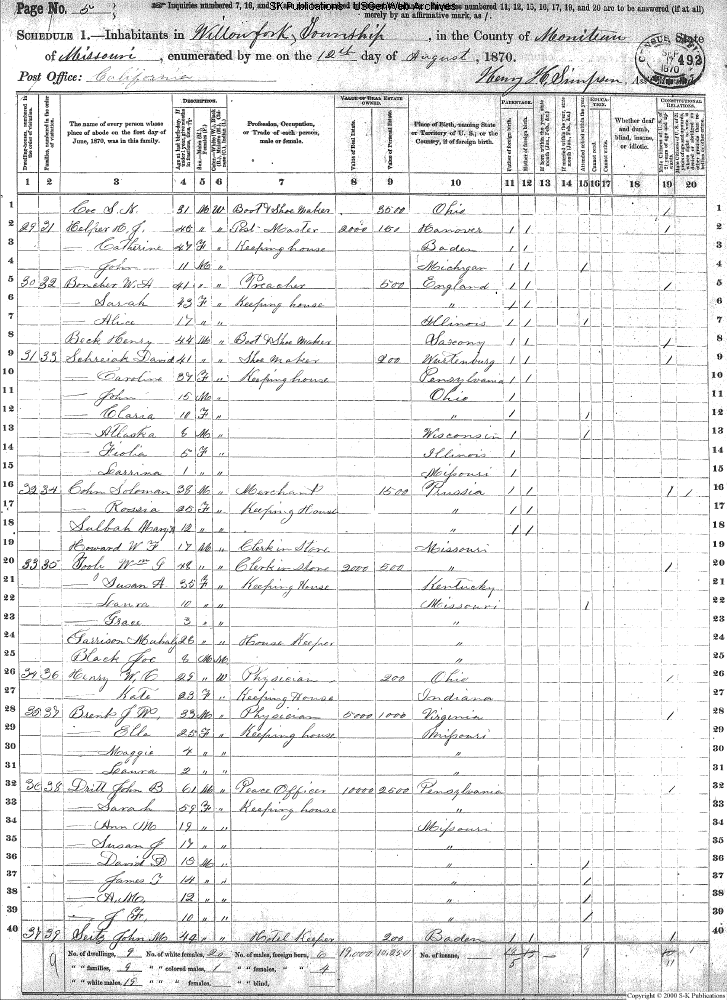 Page No. 5
SK Publications USGenWeb Archives
Inquiries numbered 7, 16, and
numbered 11, 12, 15, 16, 17, 19, and 20 are to be answered (if at all)
merely by an affirmative mark, as /.
SCHEDULE 1.—Inhabitants in Willow fork Township, in the County of Moniteau, State
of Missouri, enumerated by me on the 12th day of August, 1870.
Post Office: California
Henry H. Simpson, Ass
493
1870
Dwelling-houses, numbered in the order of visitation.
Families, numbered in the order of visitation.
The name of every person whose place of abode on the first day of June, 1870, was in this family.
DESCRIPTION.
Profession, Occupation, or Trade of each person, male or female.
VALUE OF REAL ESTATE OWNED.
Value of Real Estate.
Value of Personal Estate.
Place of Birth, naming State or Territory of U. S.; or the Country, if of foreign birth.
PARENTAGE.
Father of foreign birth.
Mother of foreign birth.
EDUCATION.
Attended school within the year.
Cannot read.
Cannot write.
Whether deaf and dumb, blind, insane, or idiotic.
CONSTITUTIONAL RELATIONS.
1 2 3 4 5 6 7 8 9 10 11 12 13 14 15 16 17 18 19 20
1 Coe S. K. 31 M W Boot & Shoe Maker 3500 Ohio / 1
2 29 31 Helper H. J. 45 " " Post Master 2000 150 Hanover / / / 2
3 — Catherine 47 F " Keeping house Baden / / 3
4 — John 11 M " Michigan / / / 4
5 30 32 Boncher W. A 41 " " Preacher 500 England / / / 5
6 — Sarah 43 F " Keeping house " / / 6
7 — Alice 17 " " Illinois / / / 7
8 Beck Henry 44 M " Boot & Shoe Maker Saxony / / / 8
9 31 33 Schreiak David 41 " " Shoe Maker 200 Wurtenburg / / / 9
10 — Caroline 37 F " Keeping house Pensylvania / / 10
11 — John 15 M " Ohio / 11
12 — Claria 10 F " " / / 12
13 — Allaska 8 M " Wisconsin / / 13
14 — Fiolia 5 F " Illinois / 14
15 — Larrina 1 " " Missouri / 15
16 32 34 Cohn Soloman 38 M " Merchant 1500 Prussia / / / / 16
17 — Rossia 25 F " Keeping House " / / 17
18 Sulbah Mary 12 " " " / / 18
19 Howard W F 17 M " Clerk in Store Missouri 19
20 33 35 Pool Wm G 48 " " Clerk in store 2000 500 " / 20
21 — Susan A 35 F " Keeping House Kentucky 21
22 — Laura 10 " " Missouri / 22
23 — Grace 3 " " " 23
24 Garrison Mahaly 26 " " House Keeper " 24
25 Black Joe 8 M M " 25
26 34 36 Henry W. C 29 " W Physician 200 Ohio / 26
27 — Kate 23 F " Keeping House Indiana 27
28 35 37 Brent J W. 33 M " Physician 5000 1000 Virginia / 28
29 — Ella 25 F " Keeping house Missouri 29
30 — Maggie 4 " " " 30
31 — Leanra 2 " " " 31
32 36 38 Dritt John B 61 M " Peace Officer 10000 2500 Pensylvania / 32
33 — Sarah 59 F " Keeping house " 33
34 — Ann M 19 " " Missouri 34
35 — Susan J 17 " " " 35
36 — David D 15 M " " / 36
37 — James T 14 " " " / 37
38 — A. M. 12 " " " / 38
39 — J F 10 " " " / 39
40 37 39 Seitz John M 42 " " Hotel Keeper 200 Baden / / / 40
No. of dwellings, 9 No. of white females, 20 No. of males, foreign born, 6 19,000 10,250 No. of insane, 9
" " families, 9 " " colored males, 1 " " females, " " 4
" " white males, 19 " " " females, " " blind,
Copyright © 2000 S-K Publications